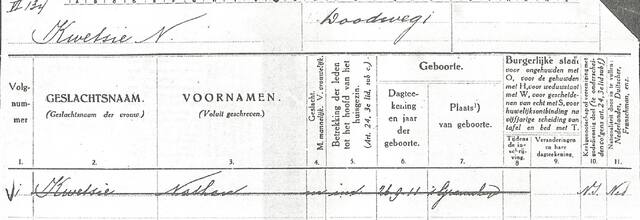 VI 134
Kwetsie N. Doodwegi
Volg-
nummer
1.
GESLACHTSNAAM.
(Geslachtsnaam der vrouw.)
2.
VOORNAMEN.
(Voluit geschreven.)
3.
Geslacht.
M. mannelijk. V. vrouwelijk.
4.
Betrekking der leden
tot het hoofd van het
huisgezin.
(Art. 24, 3e lid, sub c.)
5.
Geboorte.
Dagtee-
kening
en jaar
der
geboorte.
6.
Plaats¹)
van geboorte.
7.
Burgerlijke staat,
voor ongehuwden met
O, voor de gehuwden
met H, voor weduwstaat
met W, voor gescheide-
nen van echt met S, voor
huwelijksontbinding na
vijfjarige scheiding van
tafel en bed met T.
Tijdens
de in-
schrij-
ving.
8
Veranderingen en hare
dagteekening.
9.
10.
Nationaliteit door in te vullen:
Nederlander, Duitscher,
Franschman, enz.
11.
1 Kwetsie Nathan m ind 26 9 11 N.I. Ned